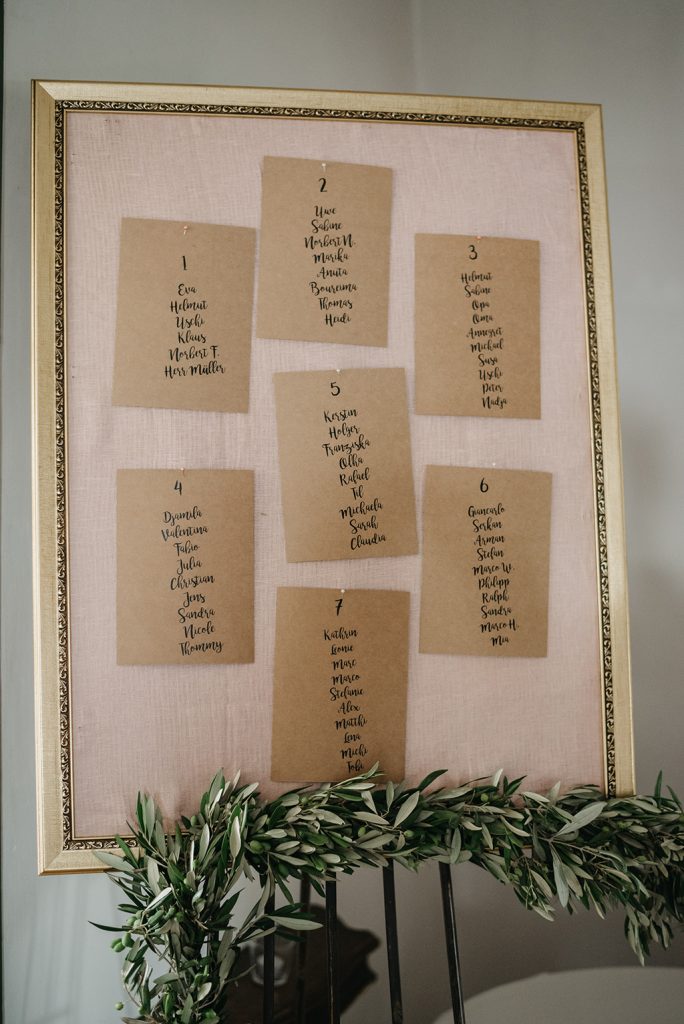 1
Eva
Helmut
Uschi
Klaus
Norbert F.
Herr Müller
2
Uwe
Sabine
Norbert N.
Marika
Anuta
Boureima
Thomas
Heidi
3
Helmut
Sabine
Opa
Oma
Annegret
Michael
Susa
Uschi
Peter
Nadja
4
Djamila
Valentina
Fabio
Julia
Christian
Jens
Sandra
Nicole
Thommy
5
Kerstin
Holger
Franziska
Olha
Rafael
Til
Michaela
Sarah
Claudia
6
Giancarlo
Serkan
Arman
Stefan
Marco W.
Philipp
Ralph
Sandra
Marco H.
Mia
7
Kathrin
Leonie
Marc
Marco
Stefanie
Alex
Matthi
Lena
Michi
Tobi